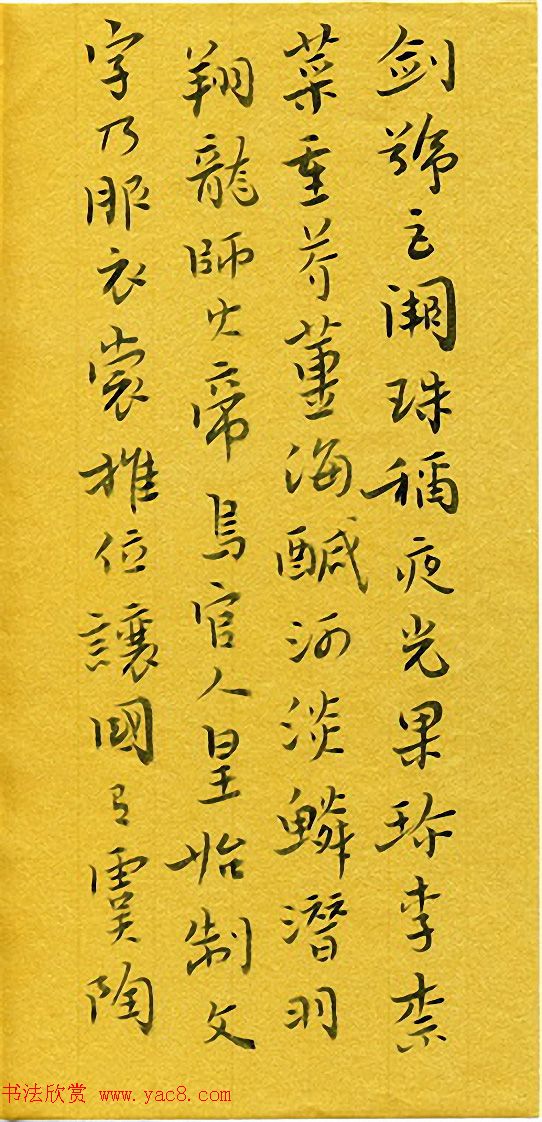 剑號巨闕珠稱夜光果珍李柰
菜重芥薑海醎河淡鱗潛羽
翔龍師火帝鳥官人皇始制文
字乃服衣裳推位讓國有虞陶
书法欣赏 www.yac8.com